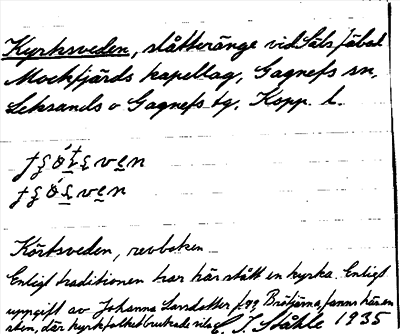 Kyrksveden, slåtteränge vid Säls fäbod
Mockfjärds kapellag, Gagnefs sn,
Leksands o Gagnefs tg, Kopp. l.
Körtsveden, revboken
Enligt traditionen har här stått en kyrka. Enligt
uppgift av Johanna Larsdotter f. Brötjärna, fanns här en
sten, där kyrkfolket brukade vila
E. J. Ståhle 1935